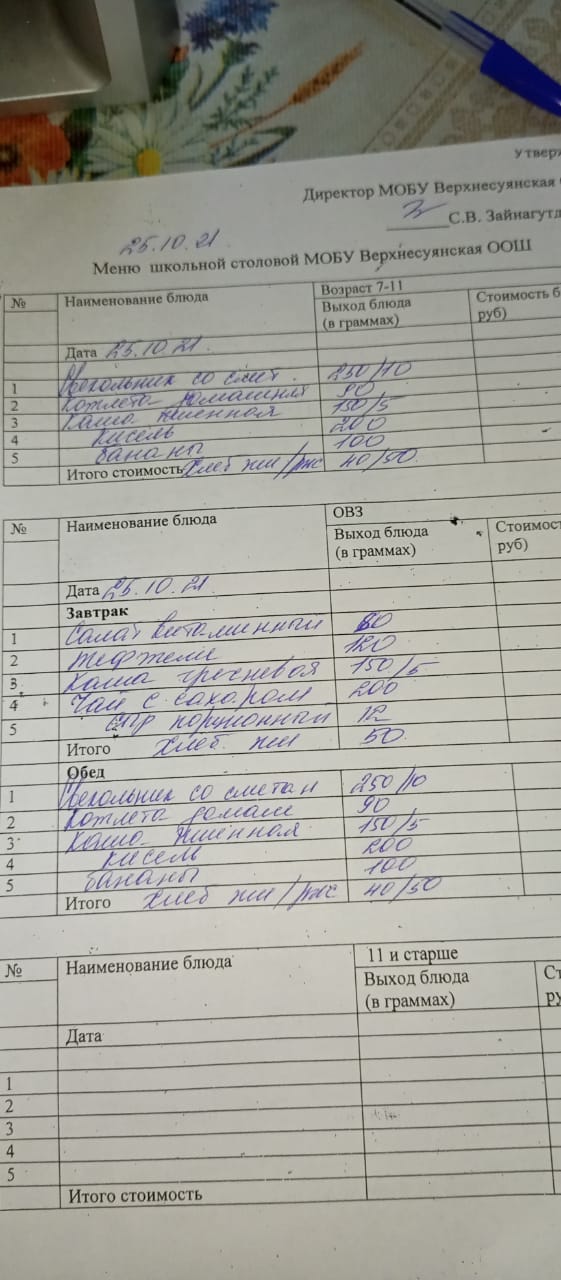 Утверж
Директор МОБУ Верхнесуянская
С.В. Зайнагутд
25.10.21
Меню школьной столовой МОБУ Верхнесуянская ООШ
№ Наименование блюда Возраст 7-11
Выход блюда (в граммах) Стоимость б руб)
Дата 25.10.21.
1 со смет. 250/10
2 Котлета домашняя 90
3 Каша пшенная 150/5
4 Кисель 200
5 бананы 100
Итого стоимость Хлеб пш/рж 40/50.
№ Наименование блюда ОВЗ
Выход блюда (в граммах) Стоимость руб)
Дата 25.10.21
Завтрак
1 Салат витаминный 60
2 тефтели 120
3 Каша гречневая 150/5
4 Чай с сахаром 200
5 сыр порционный 12
Итого хлеб пш 50.
Обед
1 со сметан 250/10
2 Котлета домаш 90
3 Каша пшенная 150/5
4 кисель 200
5 бананы 100
Итого хлеб пш/рж 40/50
№ Наименование блюда 11 и старше
Выход блюда (в граммах) Ст ру
Дата
1
2
3
4
5
Итого стоимость